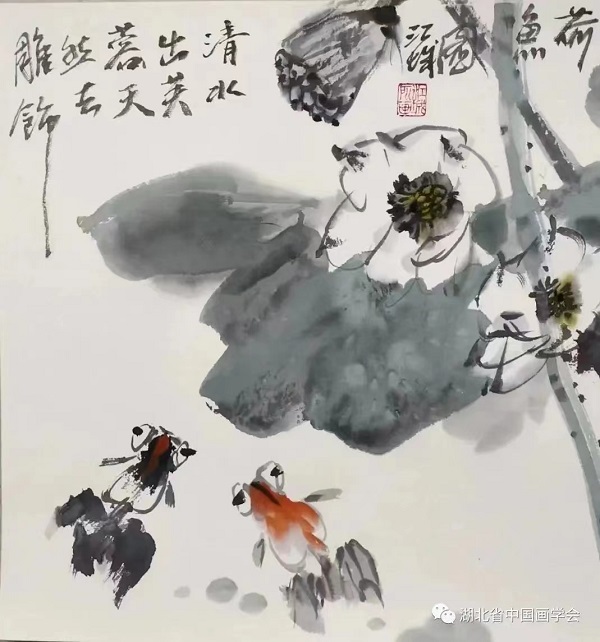 荷
魚
圖
清水
出芙
蓉天
然去
雕飾
湖北省中国画学会